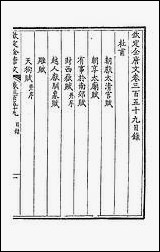 欽定全唐文卷三百五十九目錄
杜甫
朝獻太清宮賦
朝享太廟賦
有事於南郊賦
封西嶽賦并序
越人獻馴象賦
雕賦
天狗賦并序
欽定全唐文